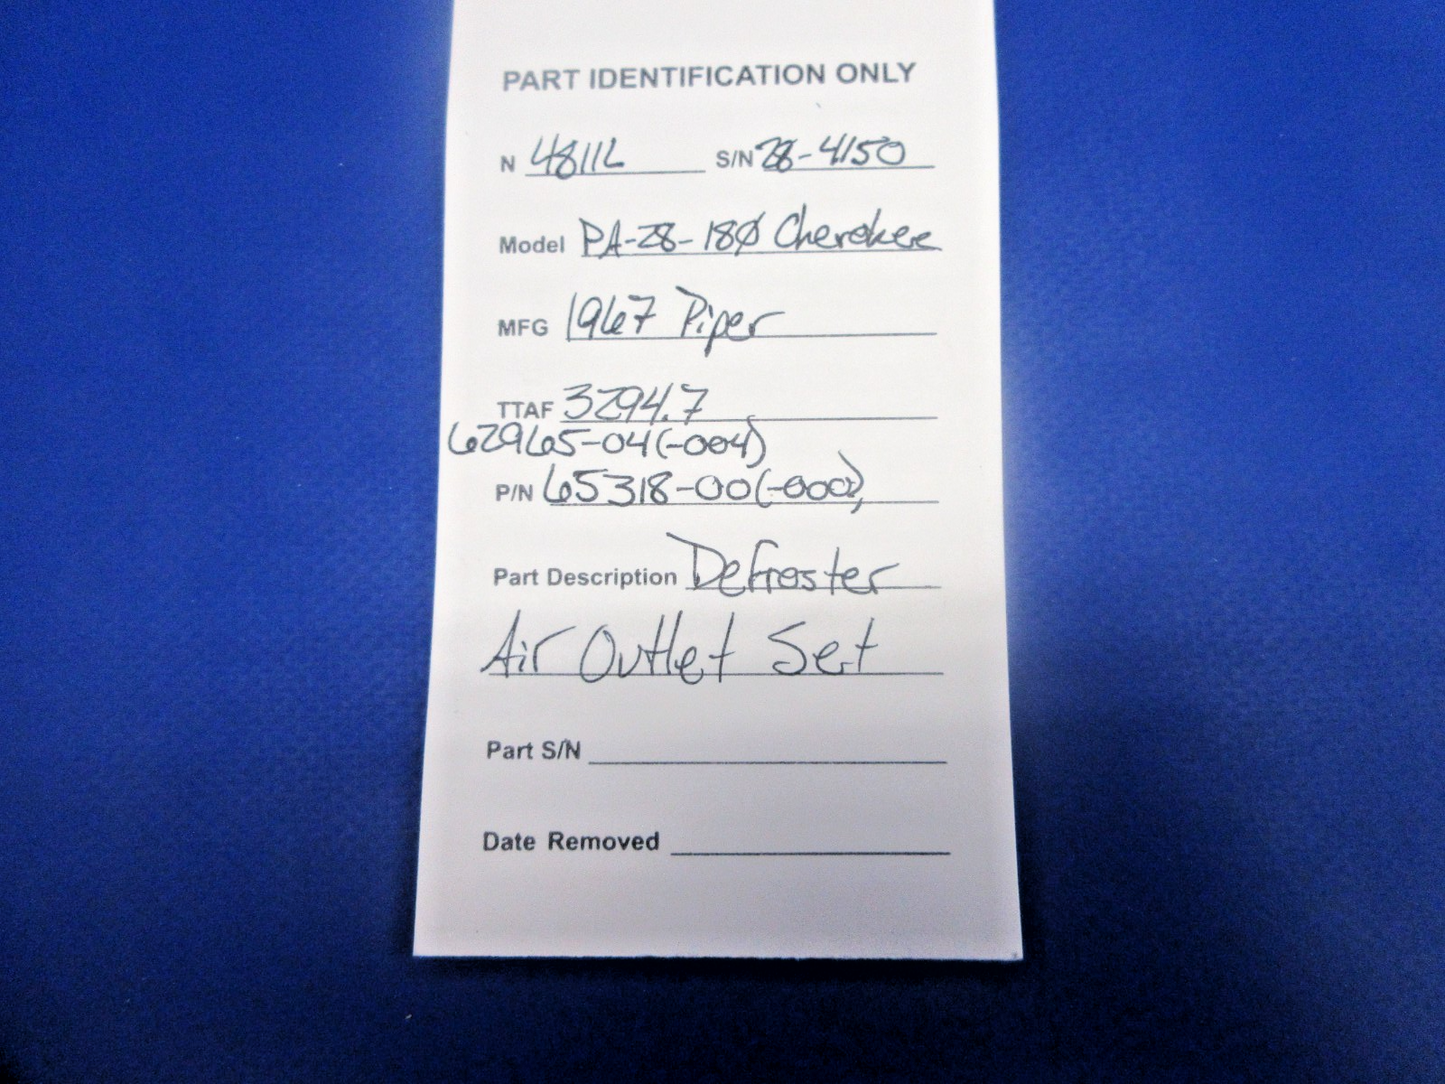 PART IDENTIFICATION ONLY
N 4811L S/N 28-4150
Model PA-28-180 Cherokee
MFG 1967 Piper
TTAF 3294.7
62965-04(-004)
P/N 65318-00(-000),
Part Description Defroster
Air Outlet Set
Part S/N
Date Removed